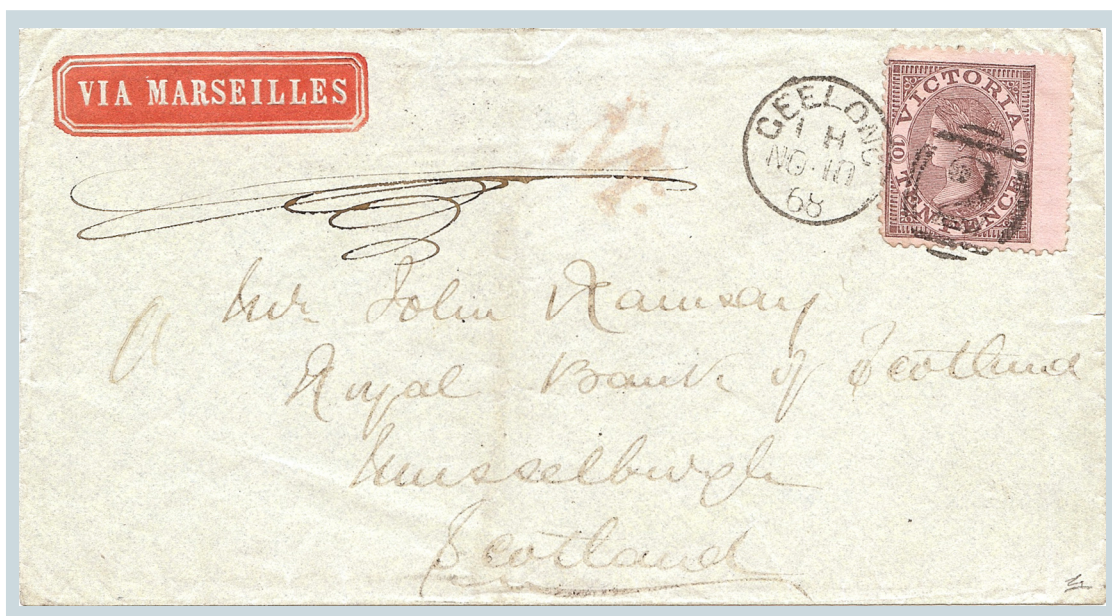 VIA MARSEILLES
GEELONG
1 H
NO·10
68
VICTORIA
10
10
TEN PENCE
Mr John Ramsay
Royal Bank of Scotland
Musselburgh
Scotland